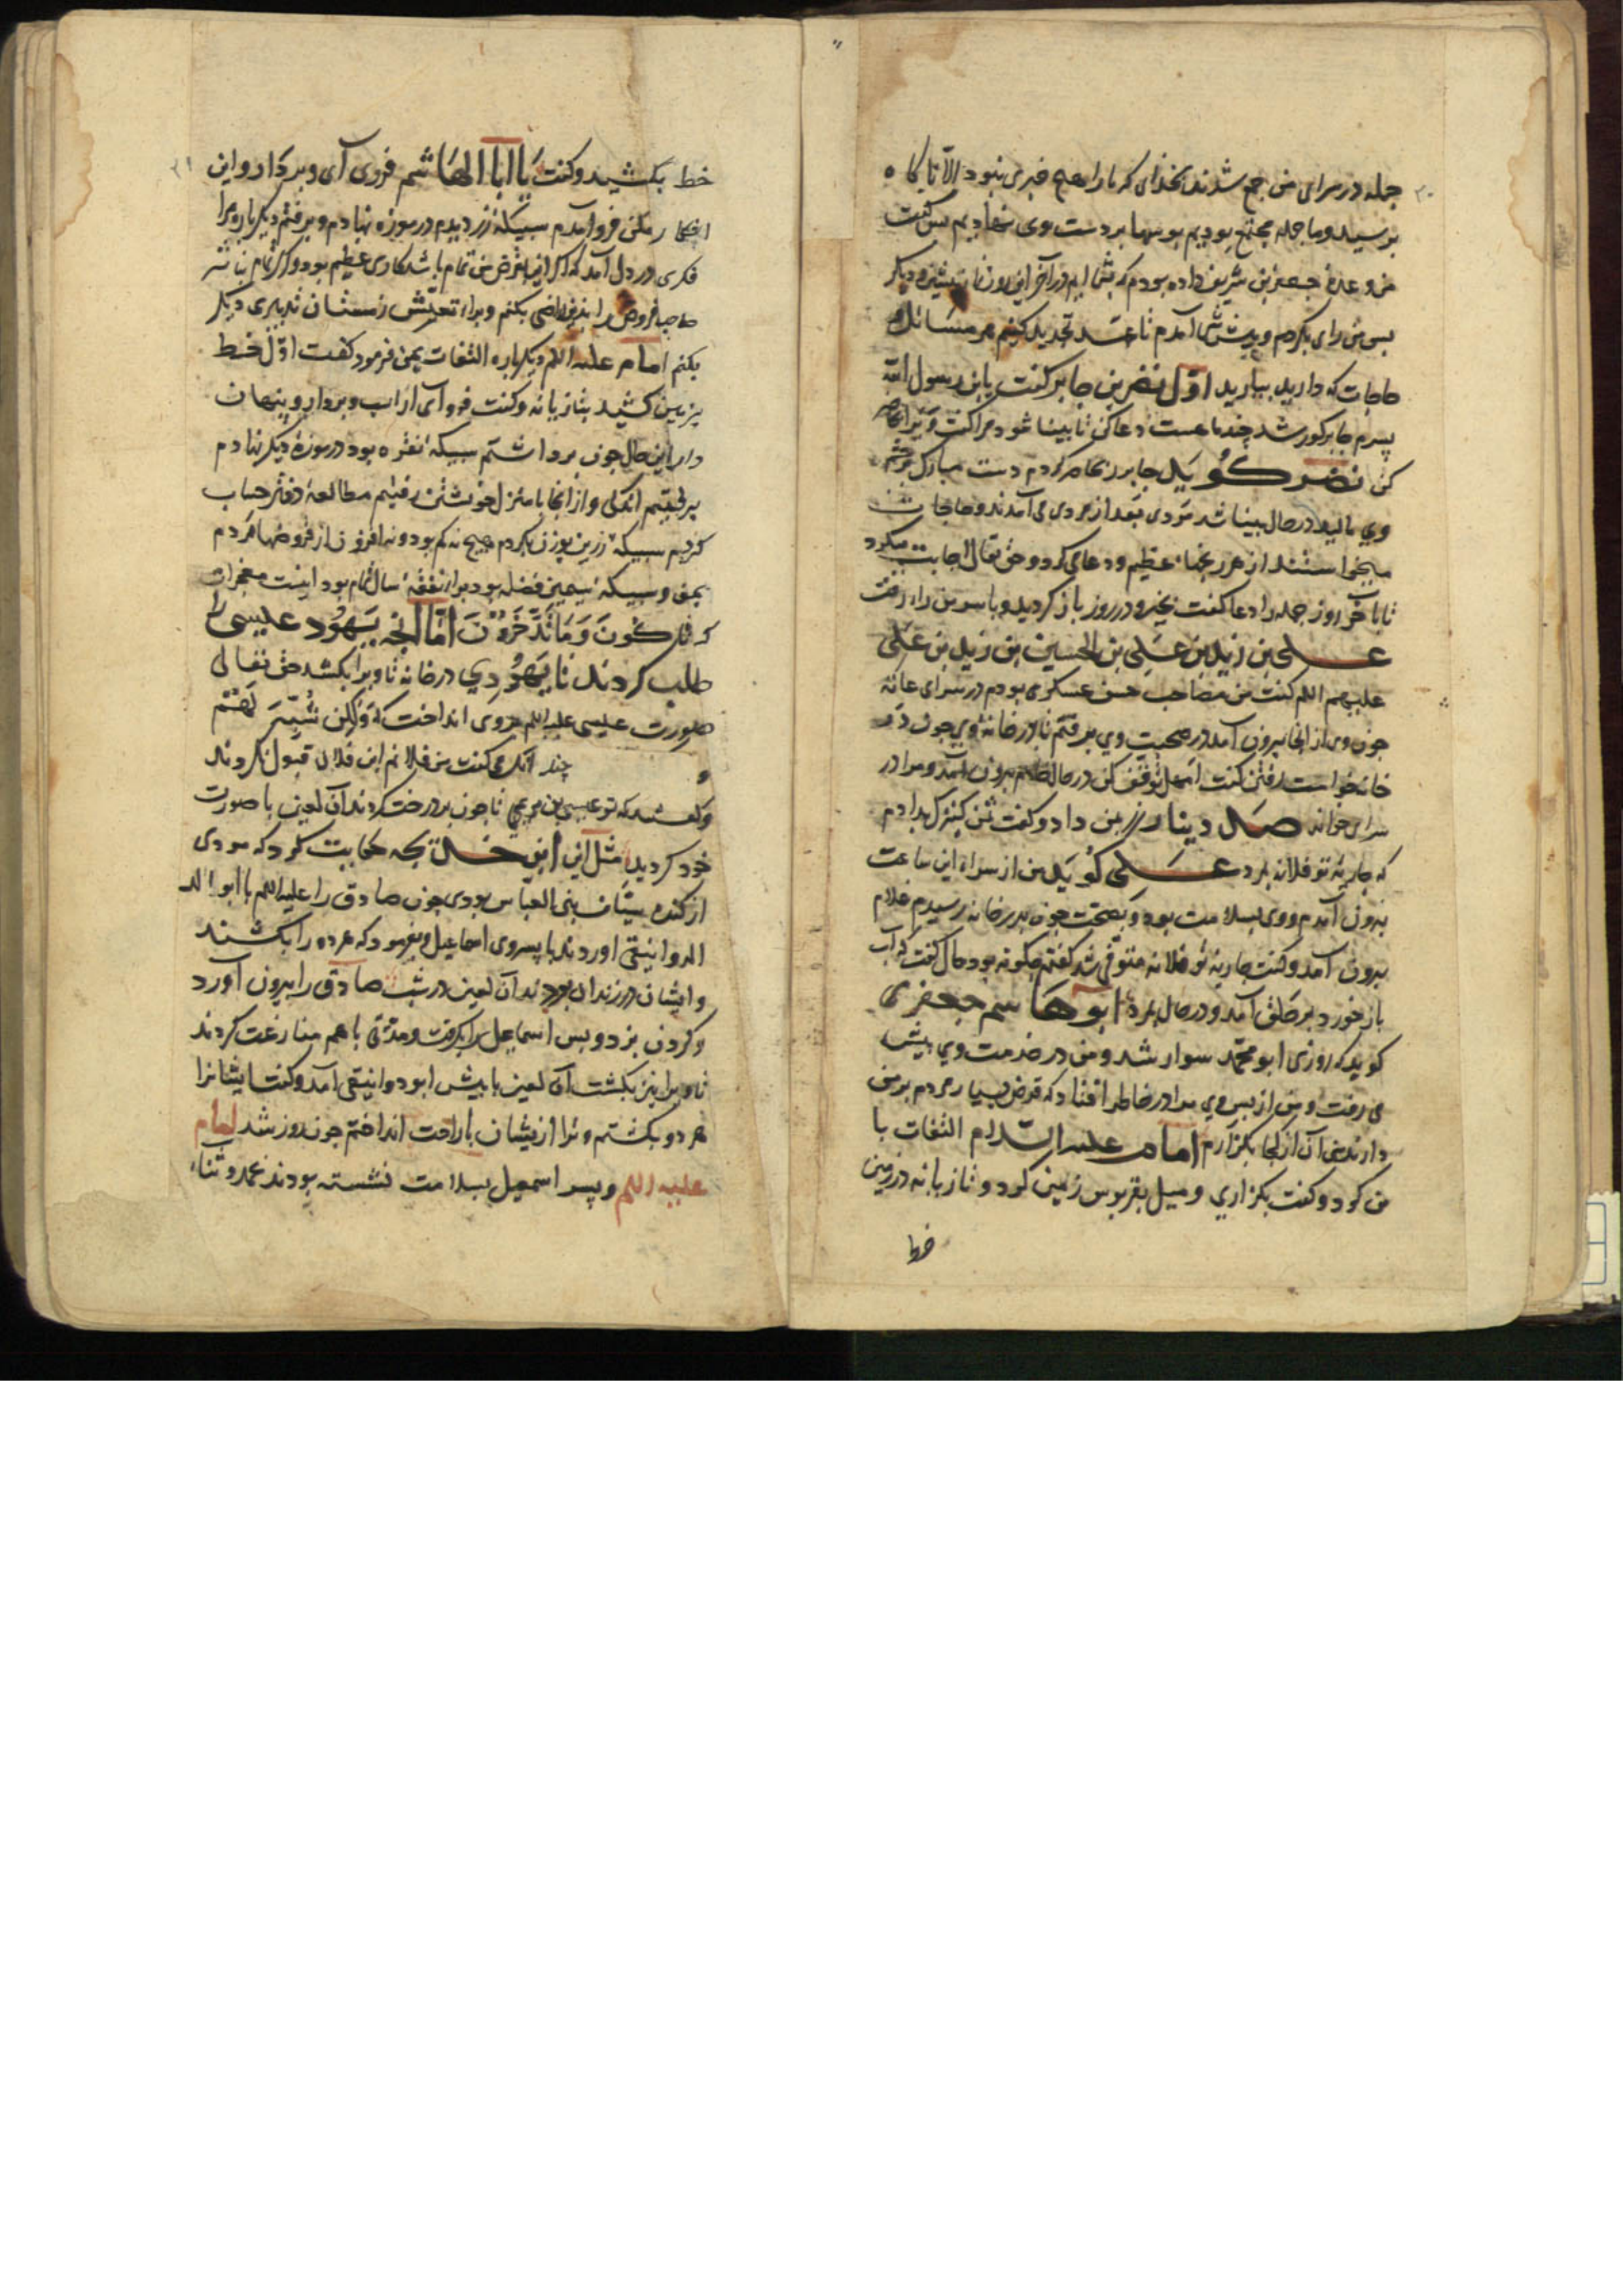 جمله در سرای من جمع شدند بخدای که ما را هیچ خبری نبود الا تا کاه
برسید و ما جمله مجتمع بودیم بوسها بر دست وی نهادیم پس کفت
من وعده جعفر بن شریف داده بودم که بشما ایم در آخر این روز نماز پیشین و دیکر
بس من رای بکردم و پیش شما آمدم تا عهد تجدید کنیم هر مسائل و
حاجات که دارید بیارید اول نضر بن جابر کفت یابن رسول الله
پسرم جابر کور شد چند ماهست دعا کن تا بینا شود مرا کفت ویرا حاضر
کن نضر کوید جابر را حاضر کردم دست مبارک بر چشم
وی مالید در حال بینا شد مردی بعد از مردی می آمدند و حاجات
میخواستند از هر ... عظیم و دعا می کرد و حق تعالی اجابت میکرد
تا باخر روز جمله را دعا کفت بخیر و در روز باز کردید و با سر من رای رفت
علی بن زید بن علی بن الحسین بن زید بن علی
علیهم السلم کفت من مصاحب حسن عسکری بودم در سرای عامه
چون وی از انجا بیرون آمد در صحبت وی برفتم تا در خانه وی چون در
خانه خواست رفتن کفت امهل توقف کن در حال خادم بیرون آمد و مرا در
سرای خواند صد دینار زر بمن داد و کفت ثمن کنیزک بدادم
که جاریه تو فلانه بمرد علی کوید من از سرای این ساعت
بیرون آمدم و وی بسلامت بود و بصحت چون بدر خانه رسیدم غلام
بیرون آمد و کفت جاریه تو فلانه متوفی شد کفتم چکونه بود حال کفت که آب
باز خورد بر حلق آمد و در حال بمرد ابو هاشم جعفری
کوید که روزی ابو محمد سوار شد و من در خدمت وی پیش
می رفت و من از پس وی مرا در خاطر افتاد که قرض بسیار مردم بر من
دارند من آن از کجا بکزارم امام علیه السلام التفات با
من کرد و کفت بکزاری و میل بقربوس زمین کرد و تازیانه در زمین
خط
خط بکشید و کفت یا ابا الهاشم فروی آی و بردار و این
اظهار مکن فرو آمدم سبیکه زر دیدم در موزه نهادم و برفتم دیکر باره مرا
فکری در دل آمد که اکر این بقرض من تمام باشد کاری عظیم بود و اکر تمام نباشد
صاحب قروض را بدین راضی بکنم و برای تعیش زمستان تدبیری دیکر
بکنم امام علیه السلم دیکر باره التفات بمن فرمود کفت اول خط
بزمین کشید بتازیانه و کفت فرو آی از اسب و بردار و پنهان
دار این حال چون برداشتم سبیکه نقره بود در موزه دیکر نهادم
برفتیم اندکی و از انجا با منزل خویشتن رفتیم مطالعه دفتر حساب
کردیم سبیکه زرین بوزن بکردم هیچ نه کم بود و نه افزون از قروضها مردم
بمن و سبیکه سیمین فضله بود برای نفقه سال تمام بود اینست معجزات
که تاکلون و ما تدخرون اما انچه یهود عیسی را
طلب کردند تا یهودی در خانه تا ویرا بکشد حق تعالی
صورت عیسی علیه السلم بر وی انداخت که ولکن شبه لهم
چند انک می کفت من فلانم ابن فلان قبول نکردند
و کفتند که تو عیسی بن مریمی تا چون بر درخت کردند آن لعین با صورت
خود کردید مثل این ابن خدیجه حکایت کرد که مردی
از کنده سیاف بنی العباس بودی چون صادق را علیه السلم با ابو الد
الدوانیقی اوردند با پسر وی اسماعیل و بفرمود که هر دو را بکشند
و ایشان در زندان بودند آن لعین در شب صادق را بیرون آورد
و کردن بزد و پس اسماعیل را بکرفت و مدتی با هم منازعت کردند
تا ویرا نیز بکشت آن لعین با پیش ابو دوانیقی آمد و کفت ایشانرا
هر دو بکشتم و ترا از یشان باراحت انداختم چون روز شد امام
علیه السلم و پسر اسمعیل بسلامت نشسته بودند بحمد و ثناء